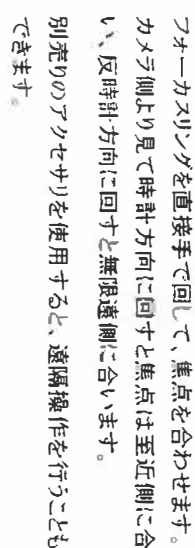 フォーカスリングを直接手で回して、焦点を合わせます。
カメラ側より見て時計方向に回すと焦点は至近側に合
い、反時計方向に回すと無限遠側に合います。
別売りのアクセサリを使用すると、遠隔操作を行うことも
できます。